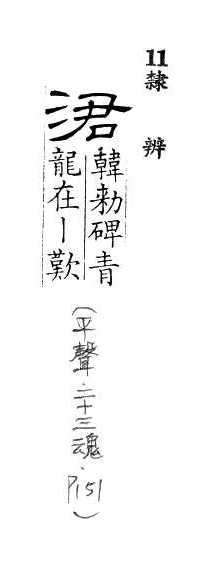 11隸辨
涒
韓勑碑青
龍在丨歎
(平聲.二十三魂.P151)